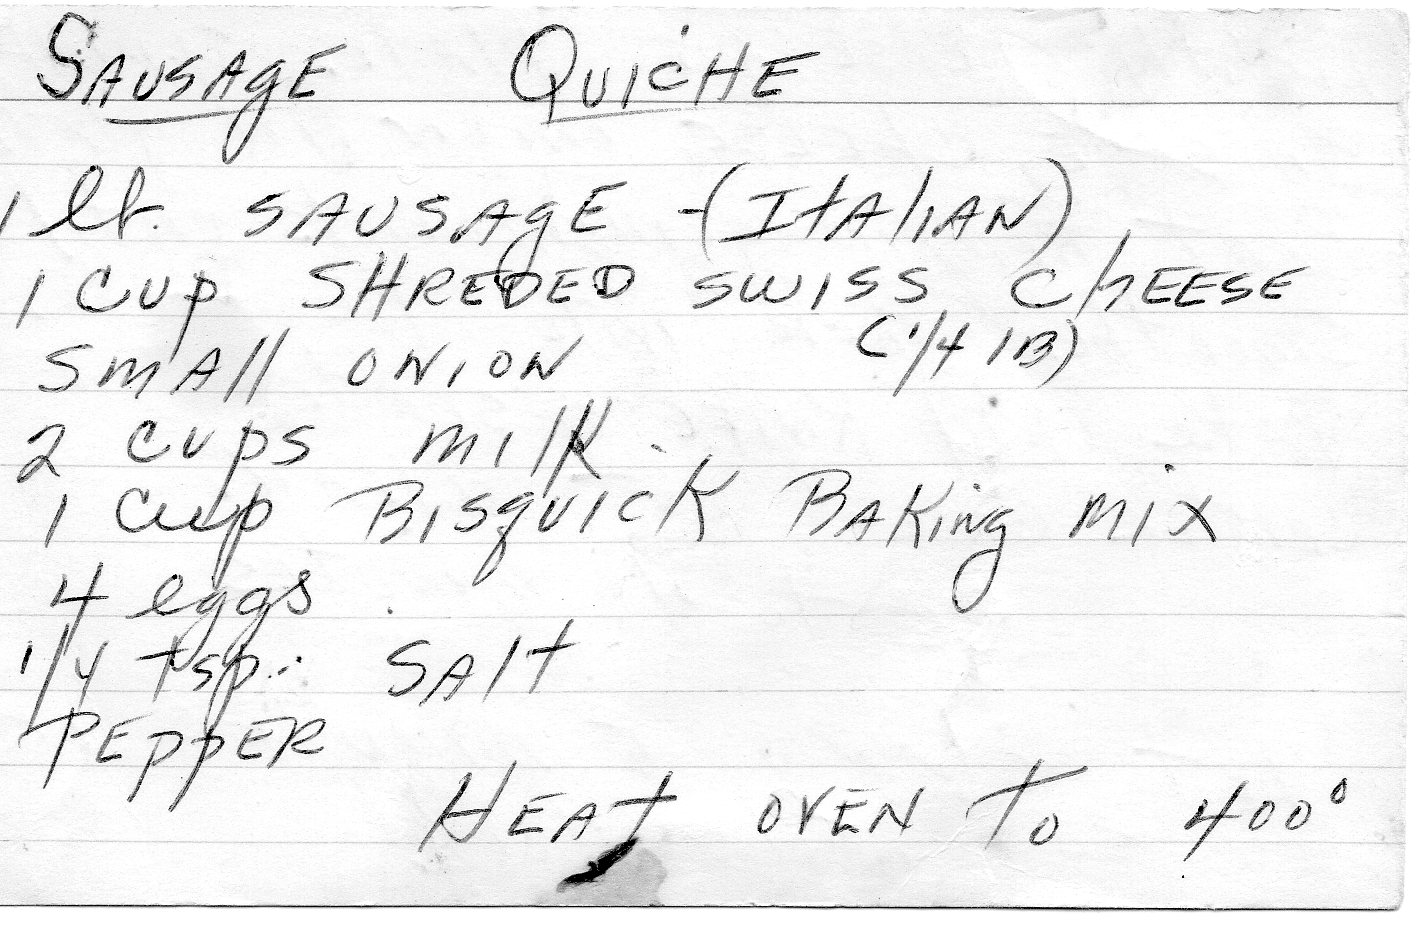 SAUSAgE QUICHE
1 lb. SAUSAgE - (ITAlIAN)
1 Cup SHREDED SWISS ChEESE
(1/4 lB)
SmAll ONION
2 cups milk
1 Cup BISqUICK BAKing mix
4 eggs
1/4 tsp. SAlt
PEppER
HEAt OVEN To 400°